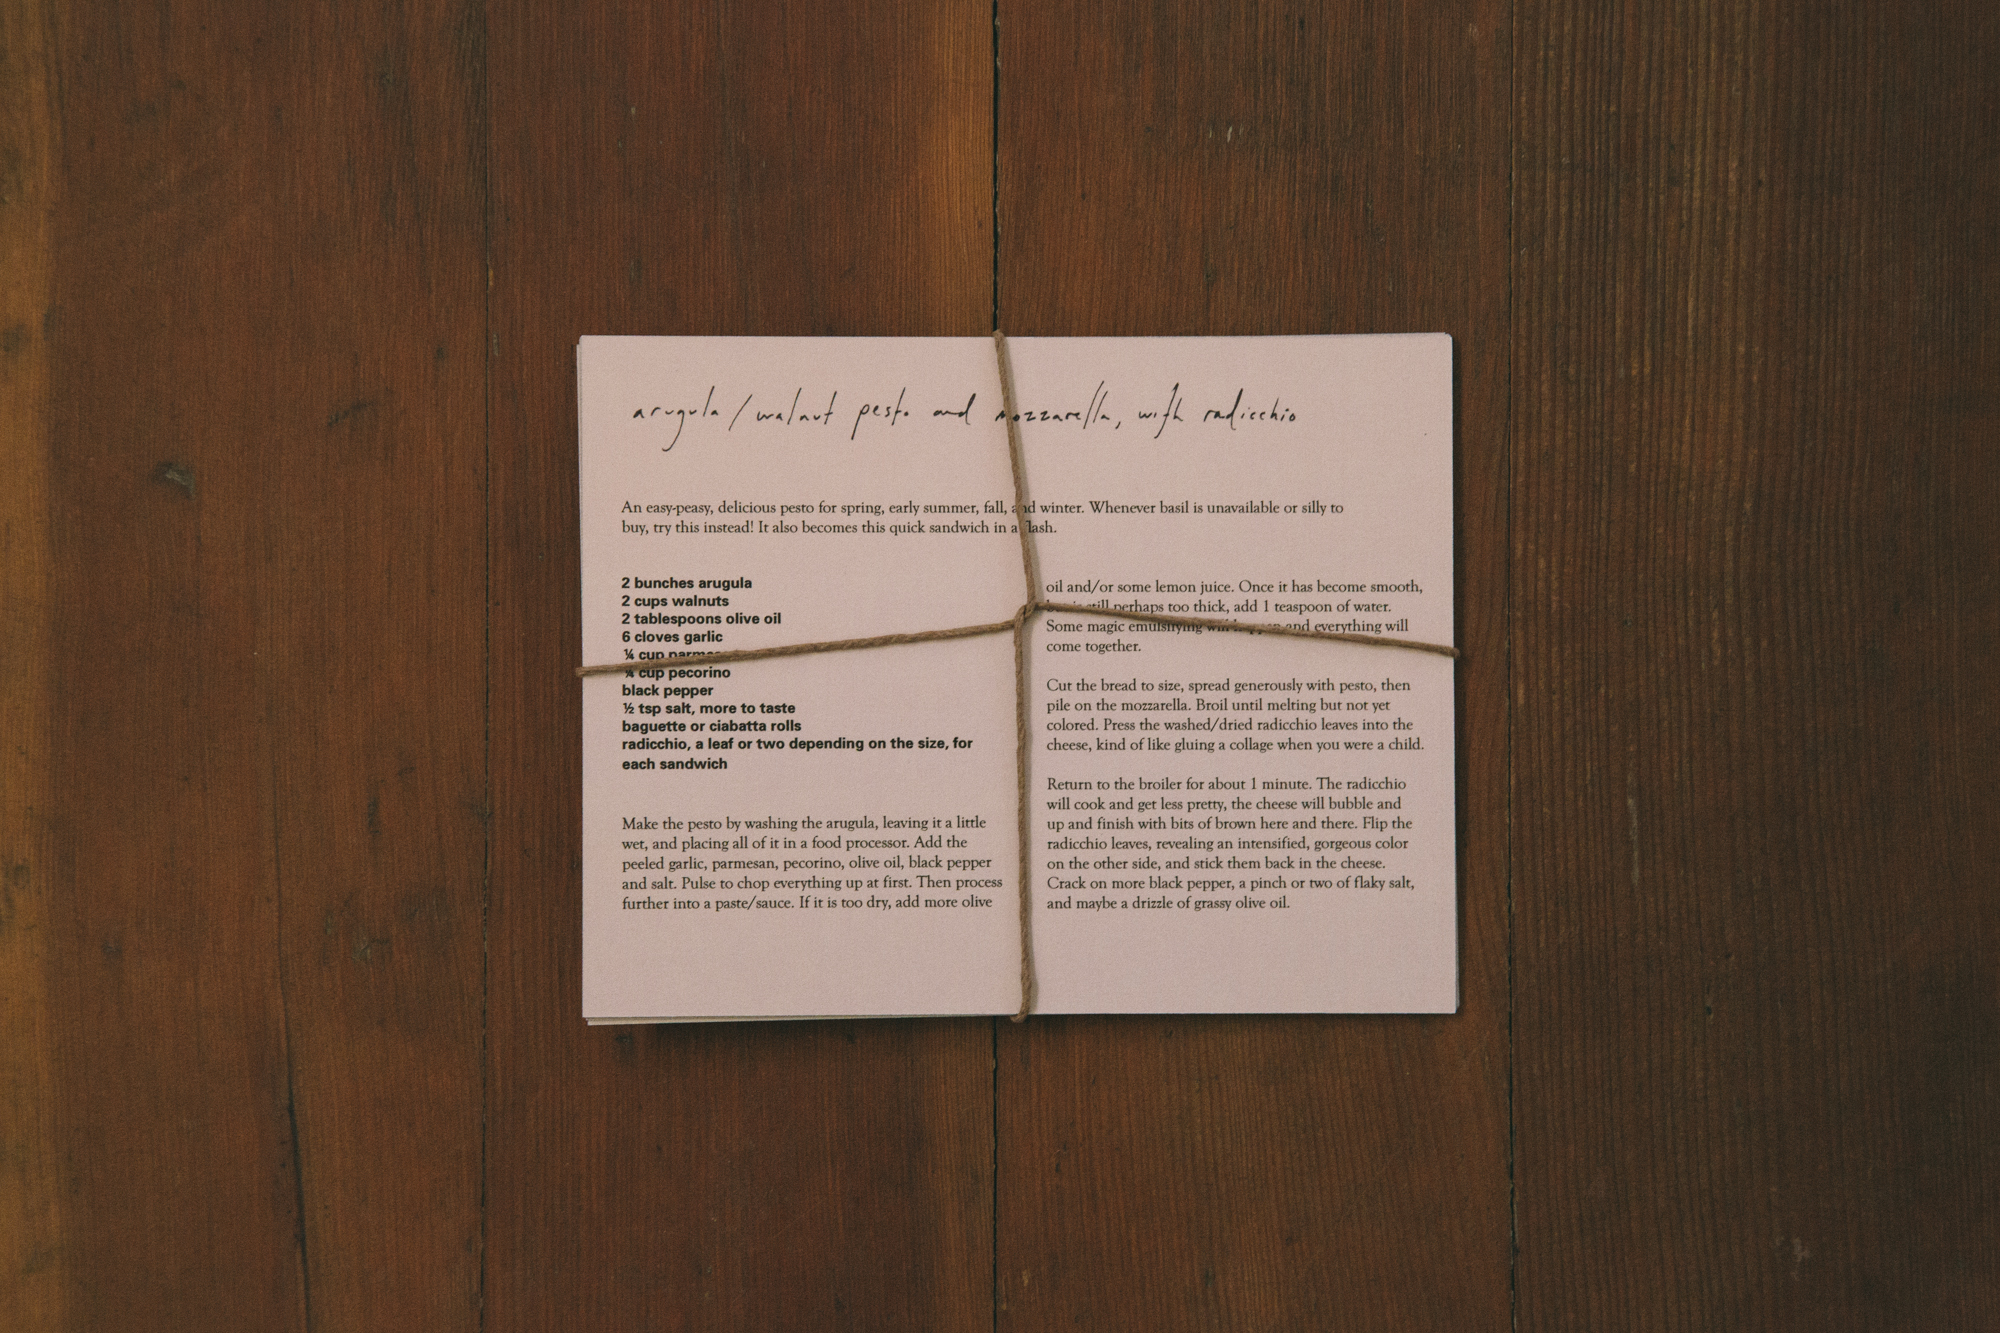 arugula/walnut pesto and mozzarella, with radicchio
An easy-peasy, delicious pesto for spring, early summer, fall, and winter. Whenever basil is unavailable or silly to
buy, try this instead! It also becomes this quick sandwich in a flash.
2 bunches arugula
2 cups walnuts
2 tablespoons olive oil
6 cloves garlic
¼ cup parmesan
¼ cup pecorino
black pepper
½ tsp salt, more to taste
baguette or ciabatta rolls
radicchio, a leaf or two depending on the size, for
each sandwich
Make the pesto by washing the arugula, leaving it a little
wet, and placing all of it in a food processor. Add the
peeled garlic, parmesan, pecorino, olive oil, black pepper
and salt. Pulse to chop everything up at first. Then process
further into a paste/sauce. If it is too dry, add more olive
oil and/or some lemon juice. Once it has become smooth,
but is still perhaps too thick, add 1 teaspoon of water.
Some magic emulsifying will happen and everything will
come together.
Cut the bread to size, spread generously with pesto, then
pile on the mozzarella. Broil until melting but not yet
colored. Press the washed/dried radicchio leaves into the
cheese, kind of like gluing a collage when you were a child.
Return to the broiler for about 1 minute. The radicchio
will cook and get less pretty, the cheese will bubble and
up and finish with bits of brown here and there. Flip the
radicchio leaves, revealing an intensified, gorgeous color
on the other side, and stick them back in the cheese.
Crack on more black pepper, a pinch or two of flaky salt,
and maybe a drizzle of grassy olive oil.